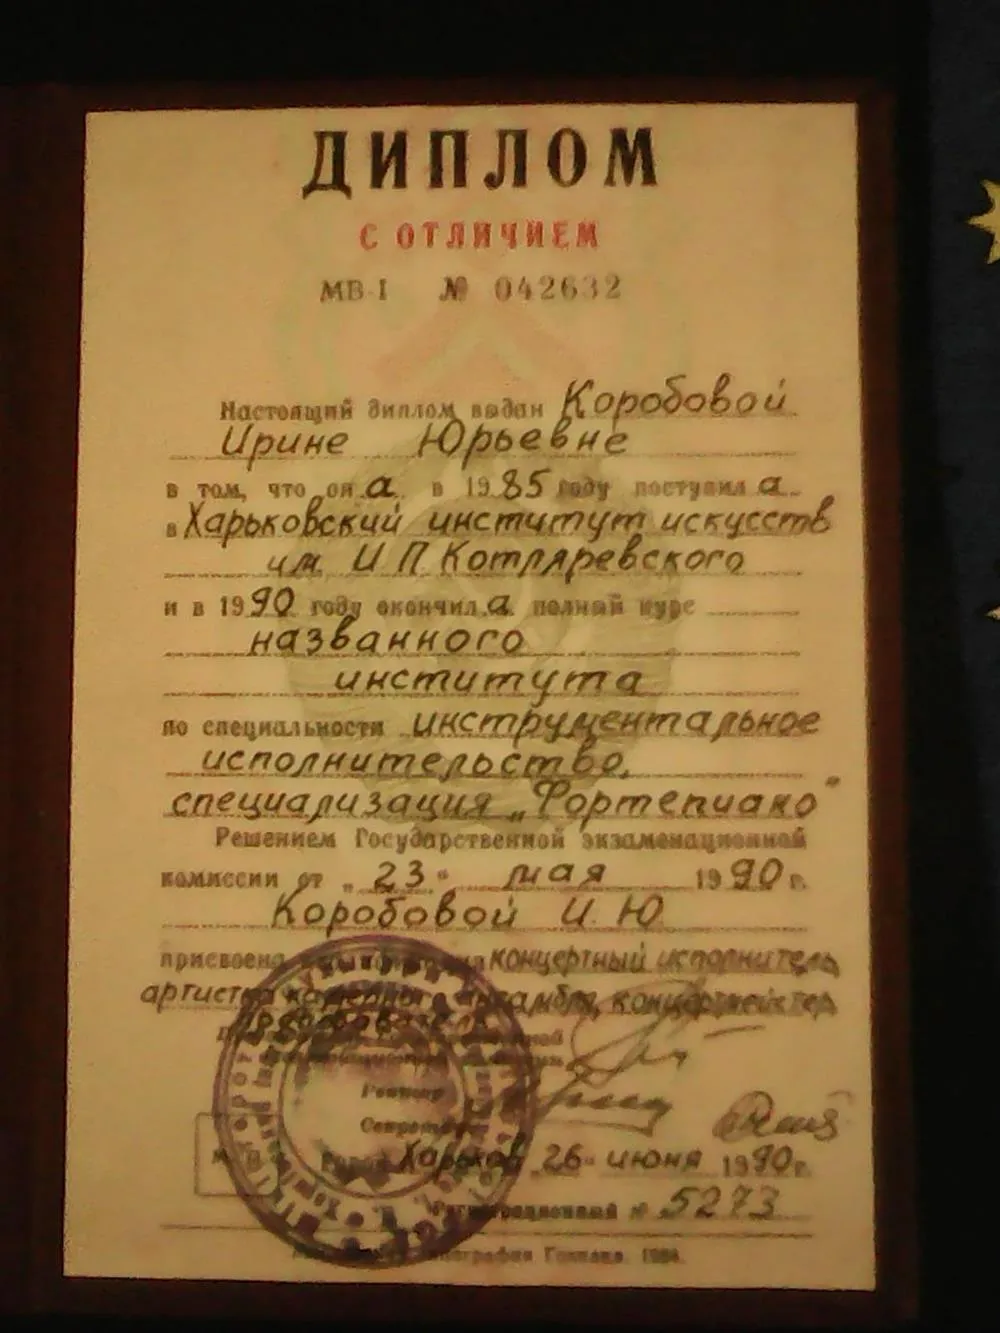 ДИПЛОМ
С ОТЛИЧИЕМ
МВ-I № 042632
Настоящий диплом выдан Коробовой
Ирине Юрьевне
в том, что он а в 1985 году поступил а
в Харьковский институт искусств
им. И П Котляревского
и в 1990 году окончил а полный курс
названного
института
по специальности инструментальное
исполнительство,
специализация „Фортепиано"
Решением Государственной экзаменационной
комиссии от „23" мая 1990 г.
Коробовой И. Ю.
присвоена квалификация концертный исполнитель
артистка камерного ансамбля, концертмейстер
преподаватель
Ректор
Секретарь
Город Харьков „26" июня 1990 г.
Регистрационный № 5273
типография Гознака. 198